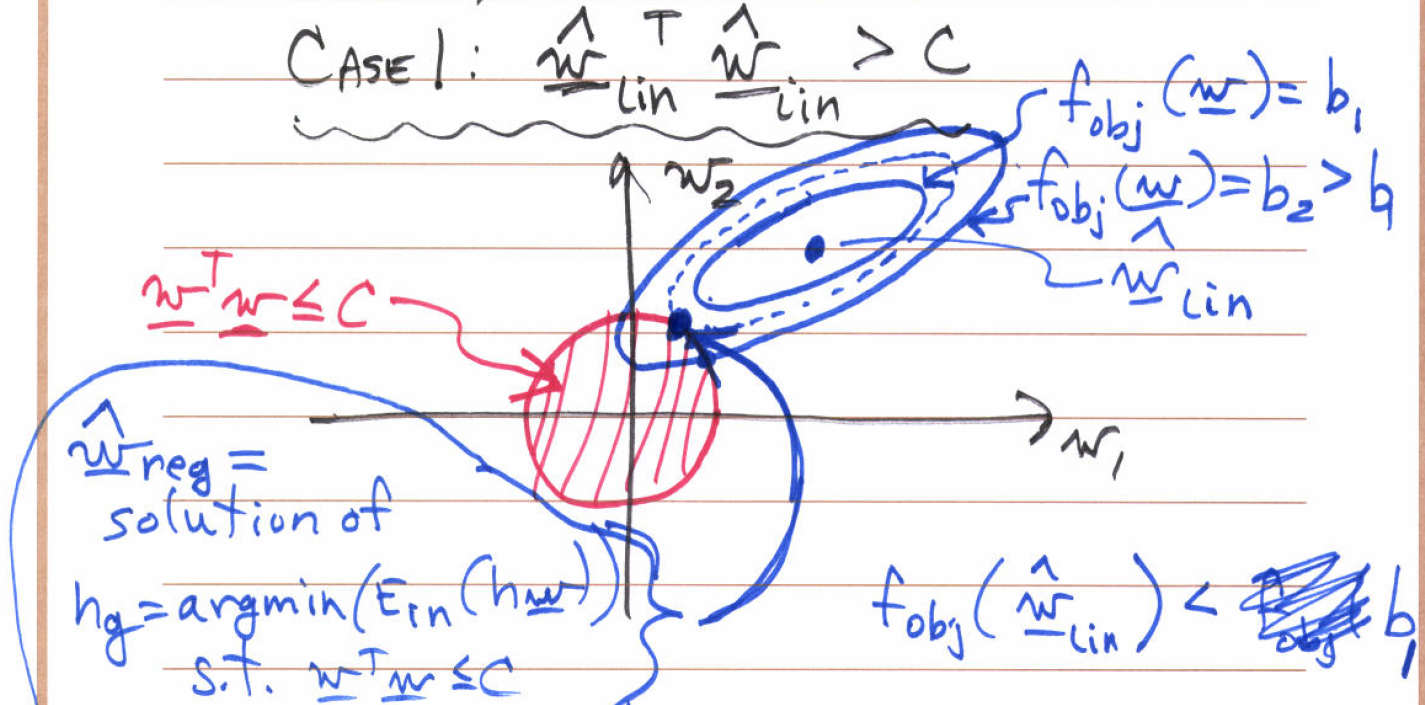 CASE 1: ŵ_lin^T ŵ_lin > C
f_obj(w) = b_1
w_2
f_obj(w) = b_2 > b_1
w^T w ≤ C
ŵ_lin
w_1
ŵ_reg =
solution of
h_g = argmin(E_in(h_w))
s.t. w^T w ≤ C
f_obj(ŵ_lin) < b_1